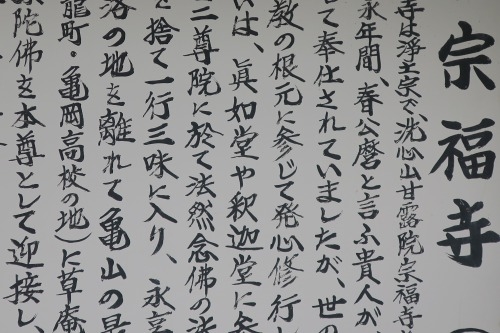 宗福寺
寺は浄土宗で、洗心山甘露院宗福寺
永年間、春公麿と言ふ貴人が、
て奉仕されていましたが、世の
教の根元に参じて発心修行し
いは、眞如堂や釈迦堂に参
二尊院に於て法然念佛の法
を捨て一行三昧に入り、永享
落の地を離れて亀山の
龍町・亀岡高校の地)に草庵
弥陀佛を本尊として迎接し、